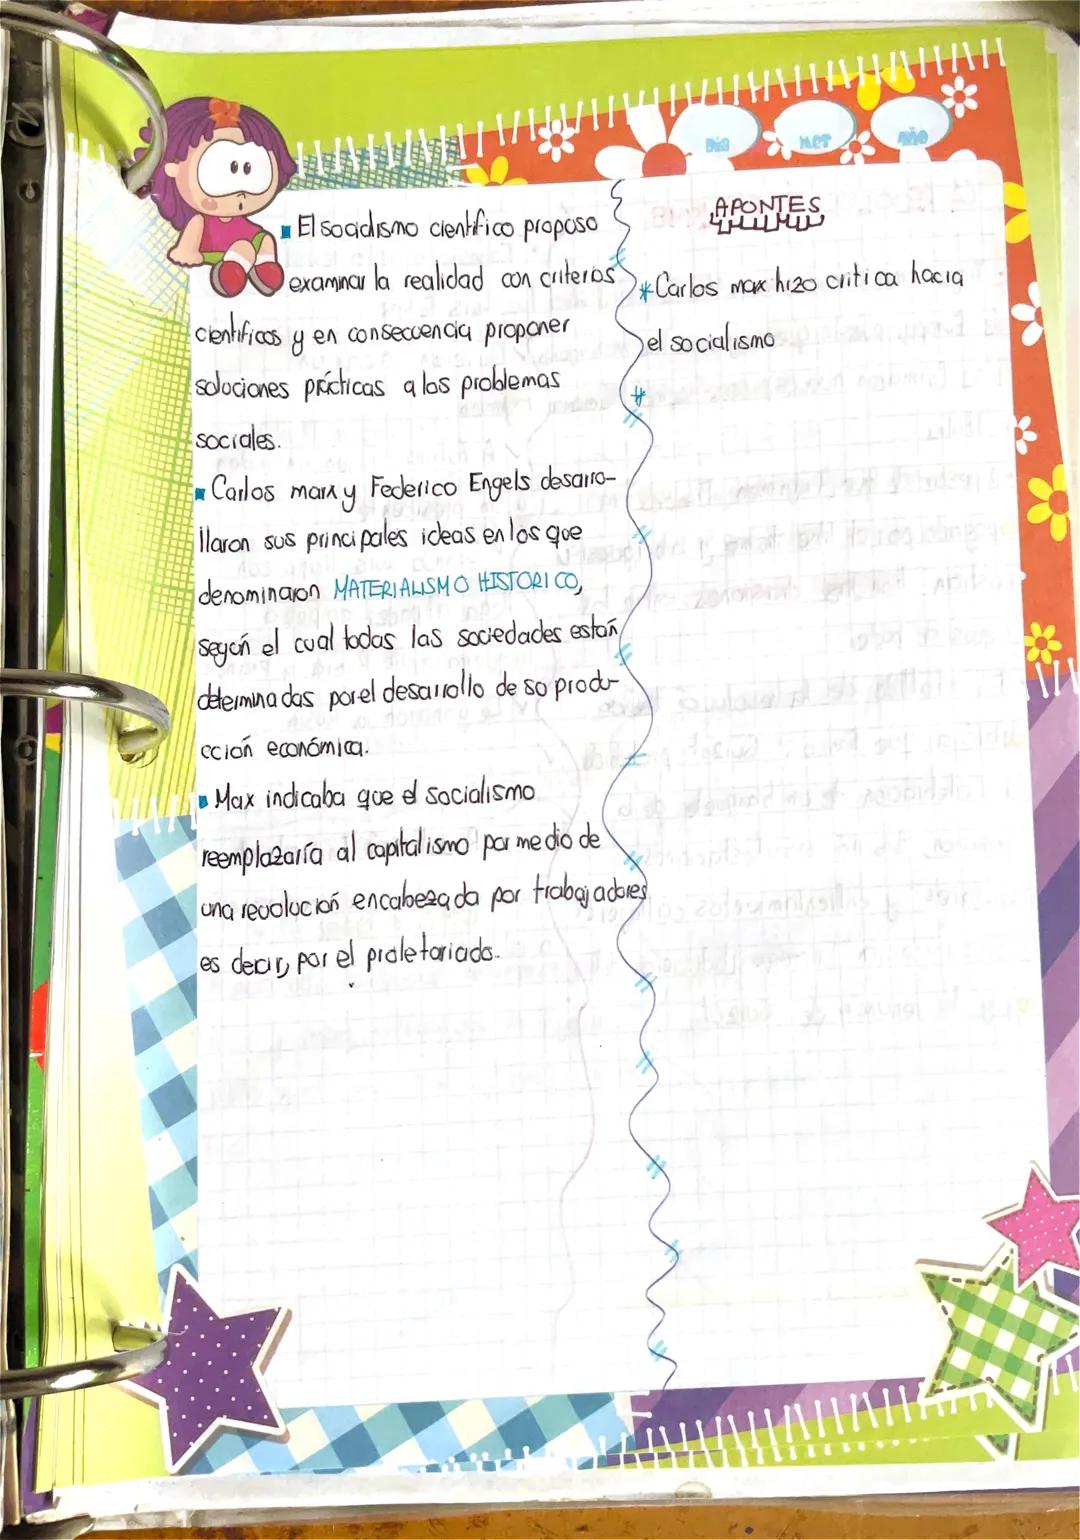 Día
Mes
Año
▪ El socialismo científico propuso
examinar la realidad con criterios
científicos y en consecuencia proponer
soluciones prácticas a los problemas
sociales.
▪ Carlos marx y Federico Engels desarro-
llaron sus principales ideas en los que
denominaron MATERIALISMO HISTORICO,
según el cual todas las sociedades están
determinadas por el desarrollo de su produ-
cción económica.
▪ Max indicaba que el socialismo
reemplazaría al capitalismo por medio de
una revolución encabezada por trabajadores
es decir, por el proletariado.
APUNTES
*Carlos max hizo critica hacia
el socialismo